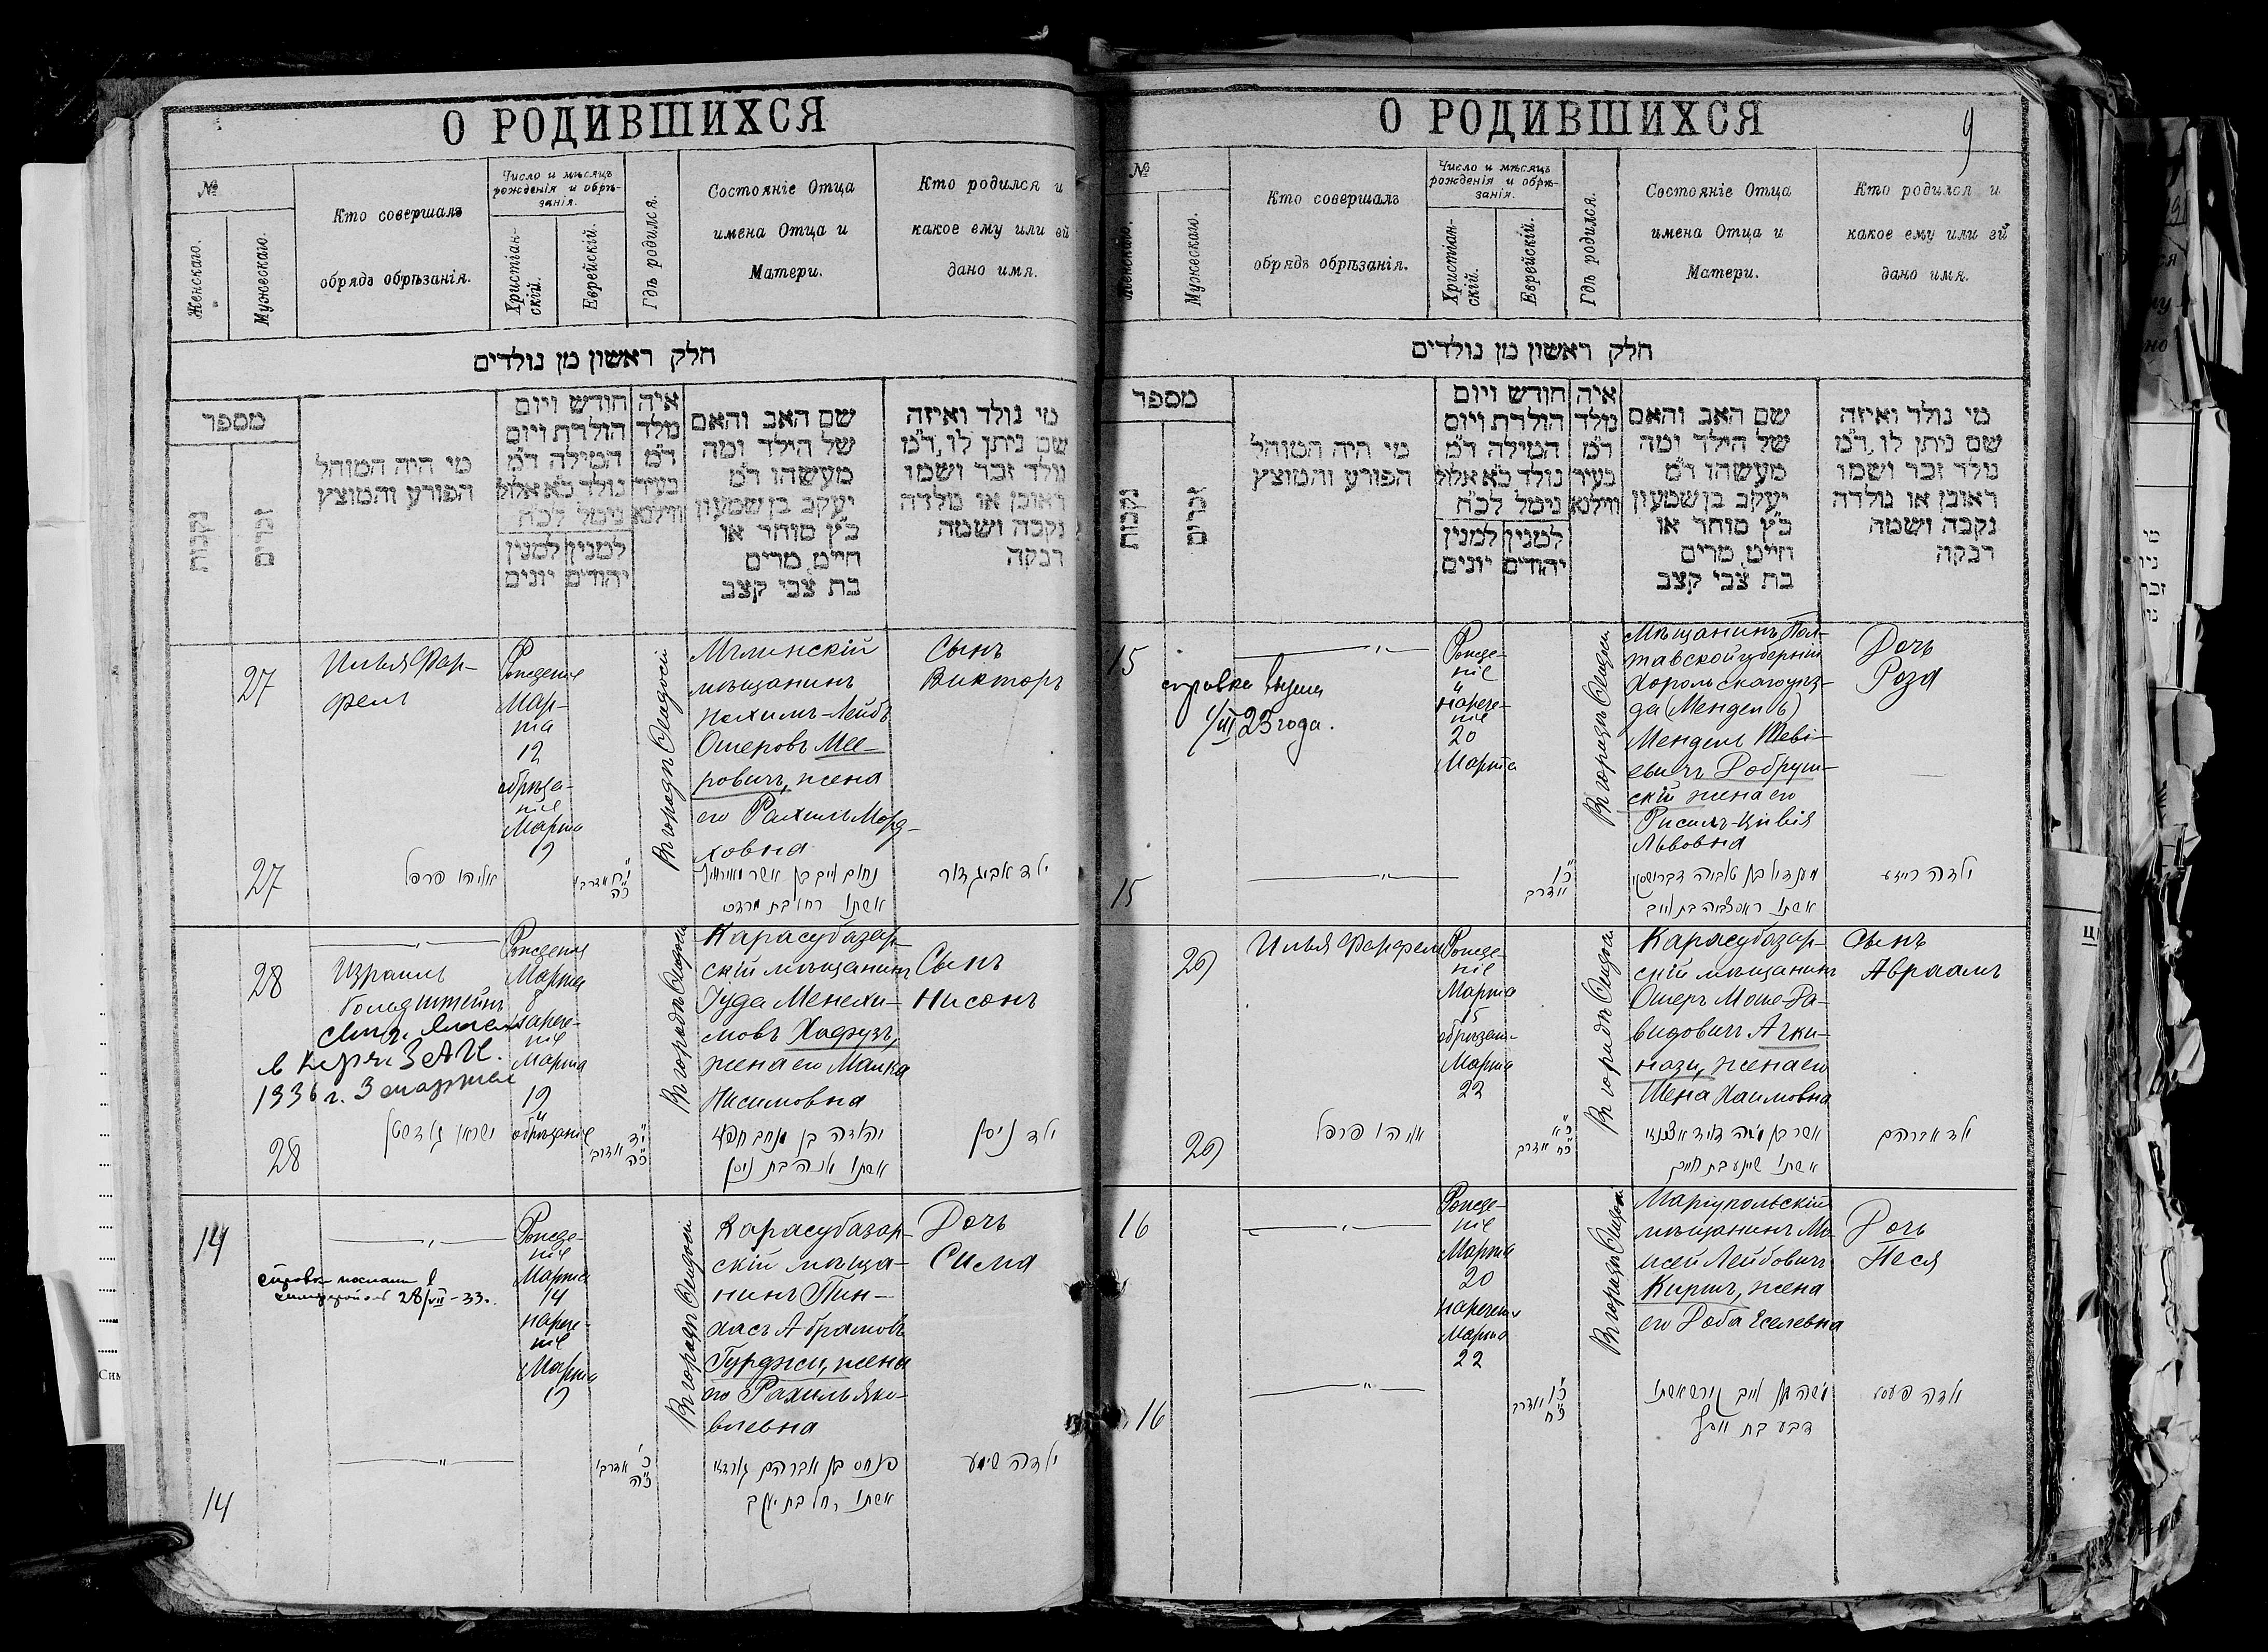 О РОДИВШИХСЯ
№
Женскаго.
Мужескаго.
Кто совершалъ
обрядъ обрѣзанія.
Число и мѣсяцъ
рожденія и обрѣ-
занія.
Христіан-
скій.
Еврейскій.
Гдѣ родился.
Состояніе Отца
имена Отца и
Матери.
Кто родился и
какое ему или ей
дано имя.
חלק ראשון מן נולדים
מספר
נקבות
זכרים
מי היה המוהל
הפורע והמוצץ
חודש ויום
הולדת ויום
המילה ד״מ
נולד כ״א אלול
נימל לכ״ח
למנין למנין
יהודים יונים
איה
מלד
ד״מ
בעיר
ווילנא
שם האב והאם
של הילד ומה
מעשהו ד״מ
יעקב בן שמעון
כ״ץ סוחר או
חייט, מרים
בת צבי קצב
מי נולד ואיזה
שם ניתן לו, ד״מ
נולד זכר ושמו
ראובן או נולדה
נקבה ושמה
רבקה
27
Илья Фар-
фель
Рожденіе
Мар-
та
12
обрѣза-
ніе
Марта
19
Въ городѣ Ѳеодосіи
Мглинскій
мѣщанинъ
Нахимъ-Лейбъ
Ошеровъ Мее-
ровичъ, жена
его Рахиль Морд-
ховна
Сынъ
Викторъ
27
אליהו פרפל
אשתו רחל בת מרדכי
ילד אביגדור
28
Израиль
Гольдштейнъ
в Керчи ЗАГС.
1936 г. 3 марта
Рожденія
Марта
8
нарече-
ніе
Марта
19
обрѣзаніе
Въ городѣ Ѳеодосіи
Карасубазар-
скій мѣщанинъ
Іуда Менахи-
мовъ Хафузъ,
жена его Малка
Нисимовна
Сынъ
Нисонъ
28
ישראל גולדשטיין
אשתו מלכה בת ניסן
ילד ניסן
14
28/VII-33.
Рожде-
ніе
Марта
14
нарече-
ніе
Марта
19
Въ городѣ Ѳеодосіи
Карасубазар-
скій мѣща-
нинъ Пин-
хасъ Абрамовъ
Гурджи, жена
его Рахиль Яко-
влевна
Дочь
Сима
14
פנחס בן אברהם גורדזי
אשתו רחל בת יעקב
ילדה סימע
О РОДИВШИХСЯ
9
№
Женскаго.
Мужескаго.
Кто совершалъ
обрядъ обрѣзанія.
Число и мѣсяцъ
рожденія и обрѣ-
занія.
Христіан-
скій.
Еврейскій.
Гдѣ родился.
Состояніе Отца
имена Отца и
Матери.
Кто родился и
какое ему или ей
дано имя.
חלק ראשון מן נולדים
מספר
נקבות
זכרים
מי היה המוהל
הפורע והמוצץ
חודש ויום
הולדת ויום
המילה ד״מ
נולד כ״א אלול
נימל לכ״ח
למנין למנין
יהודים יונים
איה
מלד
ד״מ
בעיר
ווילנא
שם האב והאם
של הילד ומה
מעשהו ד״מ
יעקב בן שמעון
כ״ץ סוחר או
חייט, מרים
בת צבי קצב
מי נולד ואיזה
שם ניתן לו, ד״מ
נולד זכר ושמו
ראובן או נולדה
נקבה ושמה
רבקה
15
справка
1/III 23 года.
Рожде-
ніе
и
нарече-
ніе
20
Марта
Въ городѣ Ѳеодосіи
Мѣщанинъ Пол-
тавской губерніи
Хорольскаго уѣз-
да (Мендель)
Мендель Теві-
евичъ Добруш-
скій жена его
Рисиль-Цивія
Львовна
Дочь
Роза
15
ילדה רייזע
29
Илья Фарфель
Рожде-
ніе
Марта
15
обрѣзан-
Марта
22
Въ городѣ Ѳеодосіи
Карасубазар-
скій мѣщанинъ
Ошеръ Моше-Да-
видовичъ Ачки-
нази, жена его
Шена Хаимовна
Сынъ
Авраамъ
29
אליהו פרפל
אשתו שיינע בת חיים
ילד אברהם
16
Рожде-
ніе
Марта
20
наречен-
Марта
22
Въ городѣ Ѳеодосіи
Маріупольскій
мѣщанинъ Мо-
исей Лейбовичъ
Киршъ, жена
его Доба Іселевна
Дочь
Песя
16
משה בן לייב קירש אשתו
ילדה פעסע